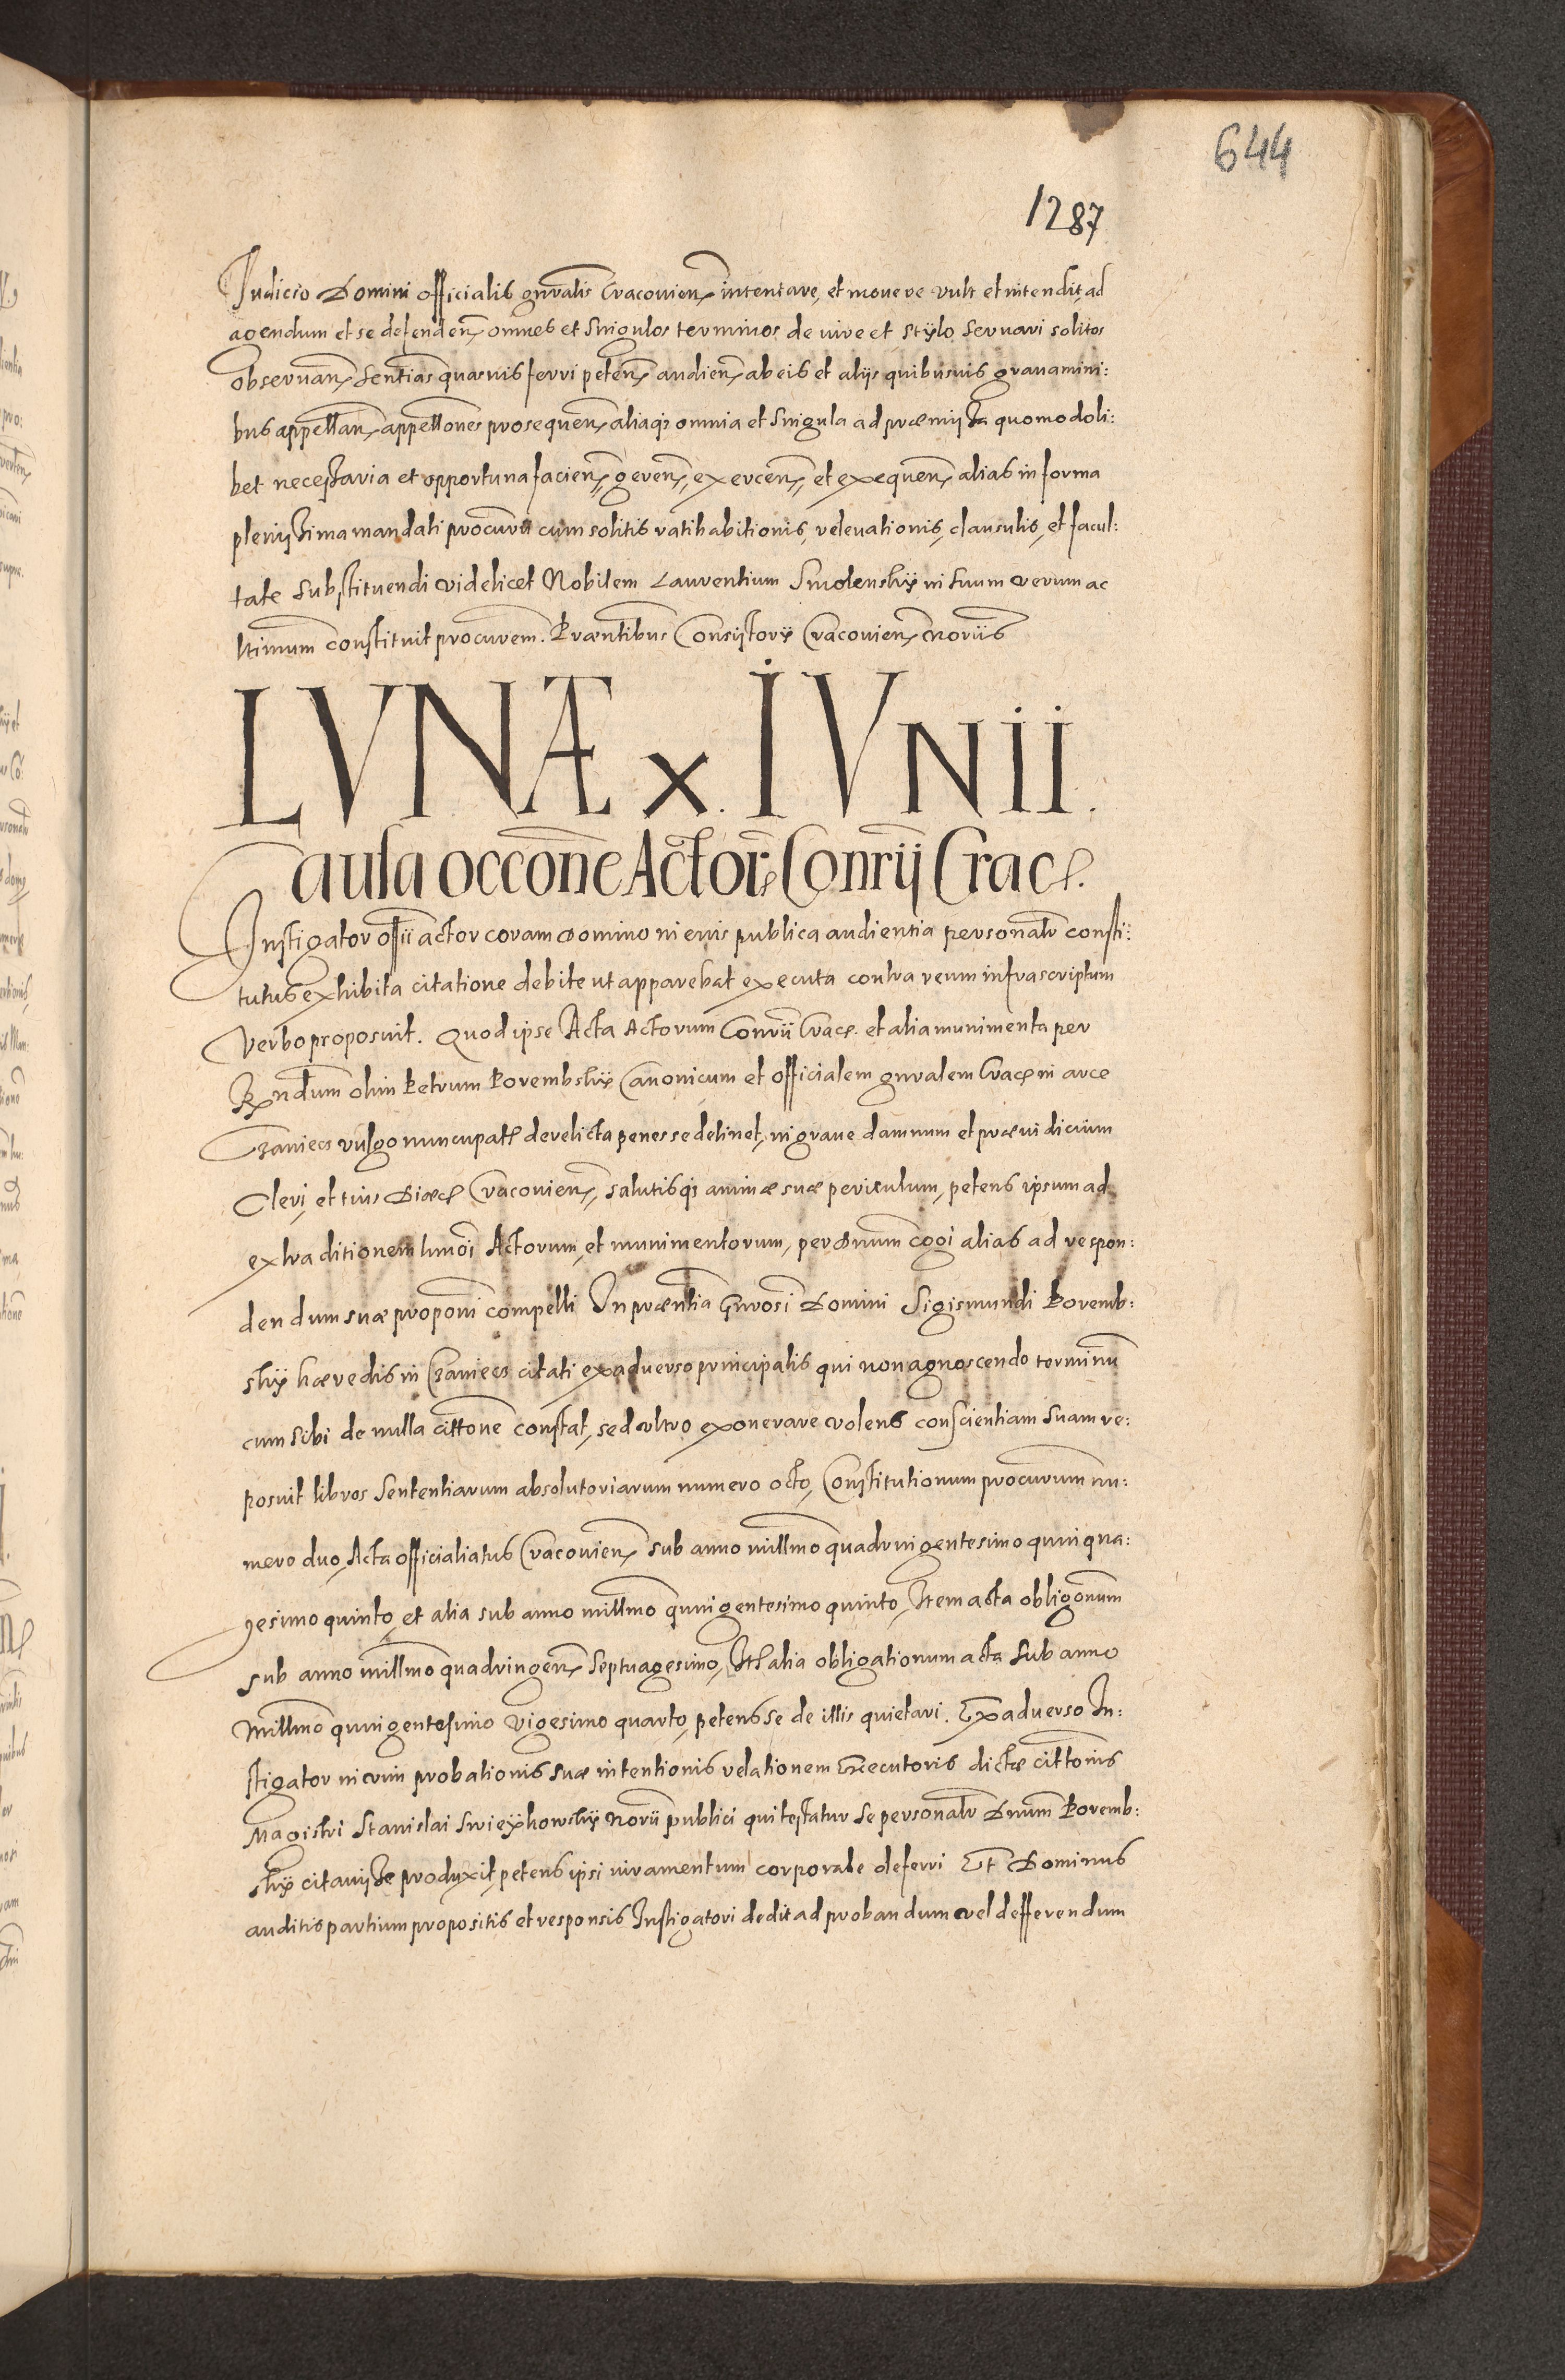 644
1287
Judicio Domini officialis gnralis Cracovien intentare, et movere vult et intendit, ad
agendum et se defenden omnes et singulos terminos de iure et stÿlo servari solitos
observan, sentias quasvis ferri peten, audien, ab eis et alijs quibusvis gravamini:
bus appellan, appellones prosequen, aliaqz omnia et singula ad præmissa quomodoli:
bet necessaria et opportuna facien, geren, exercen, et exequen, alias in forma
plenissima mandati procurii cum solitis ratihabitionis, relevationis, clausulis, et facul:
tate substituendi videlicet Nobilem Laurentium Smolenskÿ in suum verum ac
ltimum constituit procurem. Præntibus Consistorÿ Cracovien noriis
LVNÆ x. IVNII.
Causa occone Actor Conrij Crac.
Instigator offii actor coram domino in eius publica audientia personalr consti:
tutus exhibita citatione debite ut apparebat executa contra reum infrascriptum
verbo proposuit. Quod ipse Acta Actorum Conrii Crac. et alia munimenta per
Rndum olim Petrum Porembskÿ Canonicum et officialem gnralem Crac in arce
Czaniecz vulgo nuncupat derelicta penes se detinet, in grave damnum et præiudicium
Cleri, et tius Diæc Cracovien, salutisqz animæ suæ periculum, petens ipsum ad
extraditionem hmoi Actorum, et munimentorum, per dnum cogi alias ad respon:
dendum suæ proponi compelli In præntia Gnrosi Domini Sigismundi Poremb:
skÿ hæredis in Czaniecz citati exadverso principalis qui non agnoscendo terminu
cum sibi de nulla cittone constat, sed ultro exonerare volens conscientiam suam re:
posuit libros sententiarum absolutoriarum numero octo, Constitutionum procurum nu:
mero duo, Acta officialiatus Cracovien sub anno millmo quadringentesimo quinqua:
gesimo quinto, et alia sub anno millmo quingentesimo quinto, Item acta obligonum
sub anno millmo quadringen septuagesimo, It alia obligationum acta sub anno
millmo quingentesimo vigesimo quarto, petens se de illis quietari. Exadverso In:
stigator in vim probationis suæ intentionis relationem Executoris dictæ cittonis
Magistri Stanislai norii publici qui testatur se personalr Dnum Poremb:
skÿ citavisse produxit, petens ipsi iuramentum corporale deferri Et Dominus
auditis partium propositis et responsis Instigatori dedit ad probandum vel defferendum